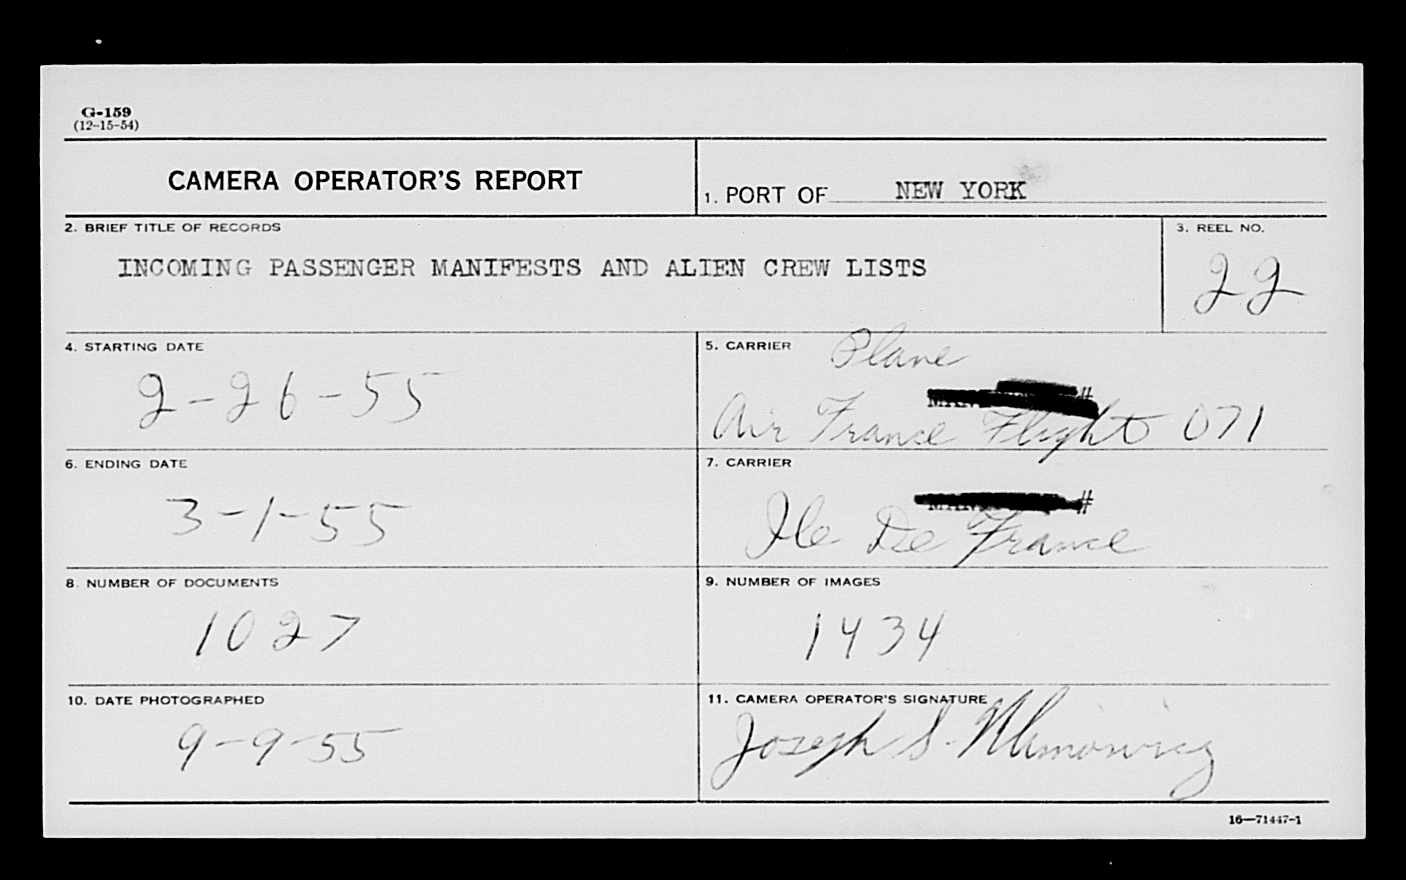 G-159
(12-15-54)
CAMERA OPERATOR'S REPORT
1. PORT OF NEW YORK
2. BRIEF TITLE OF RECORDS
INCOMING PASSENGER MANIFESTS AND ALIEN CREW LISTS
3. REEL NO.
22
4. STARTING DATE
2-26-55
5. CARRIER
Plane
#
Air France Flight 071
6. ENDING DATE
3-1-55
7. CARRIER
#
Ile De France
8. NUMBER OF DOCUMENTS
1027
9. NUMBER OF IMAGES
1434
10. DATE PHOTOGRAPHED
9-9-55
11. CAMERA OPERATOR'S SIGNATURE
Joseph S.
16—71447-1